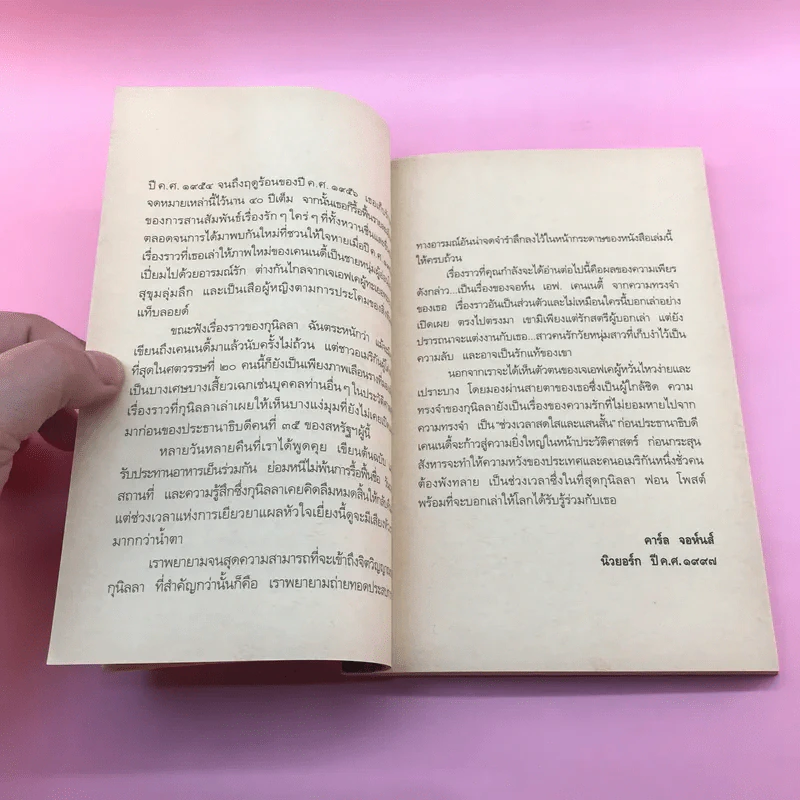 ปี ค.ศ. ๑๙๕๔ จนถึงฤดูร้อนของปี ค.ศ. ๑๙๕๖
จดหมายเหล่านี้ไว้นาน ๔๐ ปีเต็ม จากนั้นเธอก็รื้อฟื้น
ของการสานสัมพันธ์เรื่องรัก ๆ ใคร่ ๆ ที่ทั้งหวานชื่น
ตลอดจนการได้มาพบกันใหม่ที่ชวนให้ใจหายเมื่อปี ค.ศ.
เรื่องราวที่เธอเล่าให้ภาพใหม่ของเคนเนดี้เป็นชายหนุ่ม
เปี่ยมไปด้วยอารมณ์รัก ต่างกันไกลจากเจเอฟเค
สุขุมลุ่มลึก และเป็นเสือผู้หญิงตามการประโคมของ
แท็บลอยด์
ขณะฟังเรื่องราวของกุนิลลา ฉันตระหนักว่า
เขียนถึงเคนเนดี้มาแล้วนับครั้งไม่ถ้วน แต่ชาวอเมริกัน
ที่สุดในศตวรรษที่ ๒๐ คนนี้ก็ยังเป็นเพียงภาพเลือนราง
เป็นบางเศษบางเสี้ยวเฉกเช่นบุคคลท่านอื่น ๆ ใน
เรื่องราวที่กุนิลลาเล่าเผยให้เห็นบางแง่มุมที่ยังไม่เคย
มาก่อนของประธานาธิบดีคนที่ ๓๕ ของสหรัฐฯ ผู้นี้
หลายวันหลายคืนที่เราได้พูดคุย เขียนต้นฉบับ
รับประทานอาหารเย็นร่วมกัน ย่อมหนีไม่พ้นการรื้อฟื้นชื่อ
สถานที่ และความรู้สึกซึ่งกุนิลลาเคยคิดลืมหมดสิ้นให้
แต่ช่วงเวลาแห่งการเยียวยาแผลหัวใจเยี่ยงนี้ดูจะมีเสียง
มากกว่าน้ำตา
เราพยายามจนสุดความสามารถที่จะเข้าถึงจิตวิญญาณ
กุนิลลา ที่สำคัญกว่านั้นก็คือ เราพยายามถ่ายทอด
ทางอารมณ์อันน่าจดจำรำลึกลงไว้ในหน้ากระดาษของหนังสือเล่มนี้
ให้ครบถ้วน
เรื่องราวที่คุณกำลังจะได้อ่านต่อไปนี้คือผลของความเพียร
ดังกล่าว...เป็นเรื่องของจอห์น เอฟ. เคนเนดี้ จากความทรงจำ
ของเธอ เรื่องราวอันเป็นส่วนตัวและไม่เหมือนใครนี้บอกเล่าอย่าง
เปิดเผย ตรงไปตรงมา เขามิเพียงแต่รักสตรีผู้บอกเล่า แต่ยัง
ปรารถนาจะแต่งงานกับเธอ...สาวคนรักวัยหนุ่มสาวที่เก็บงำไว้เป็น
ความลับ และอาจเป็นรักแท้ของเขา
นอกจากเราจะได้เห็นตัวตนของเจเอฟเคผู้หวั่นไหวง่ายและ
เปราะบาง โดยมองผ่านสายตาของเธอซึ่งเป็นผู้ใกล้ชิด ความ
ทรงจำของกุนิลลายังเป็นเรื่องของความรักที่ไม่ยอมหายไปจาก
ความทรงจำ เป็น "ช่วงเวลาสดใสและแสนสั้น" ก่อนประธานาธิบดี
เคนเนดี้จะก้าวสู่ความยิ่งใหญ่ในหน้าประวัติศาสตร์ ก่อนกระสุน
สังหารจะทำให้ความหวังของประเทศและคนอเมริกันหนึ่งชั่วคน
ต้องพังทลาย เป็นช่วงเวลาซึ่งในที่สุดกุนิลลา ฟอน โพสต์
พร้อมที่จะบอกเล่าให้โลกได้รับรู้ร่วมกับเธอ
คาร์ล จอห์นส์
นิวยอร์ก ปี ค.ศ. ๑๙๙๗